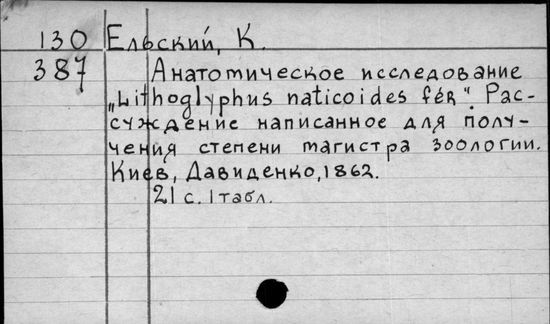 130 Ельский, К.
387 Анатомическое исследование
„Lithoglyphus naticoides fér“. Рас-
суждение написанное для полу-
чения степени магистра зоологии.
Киев, Давиденко, 1862.
21 с. 1 табл.